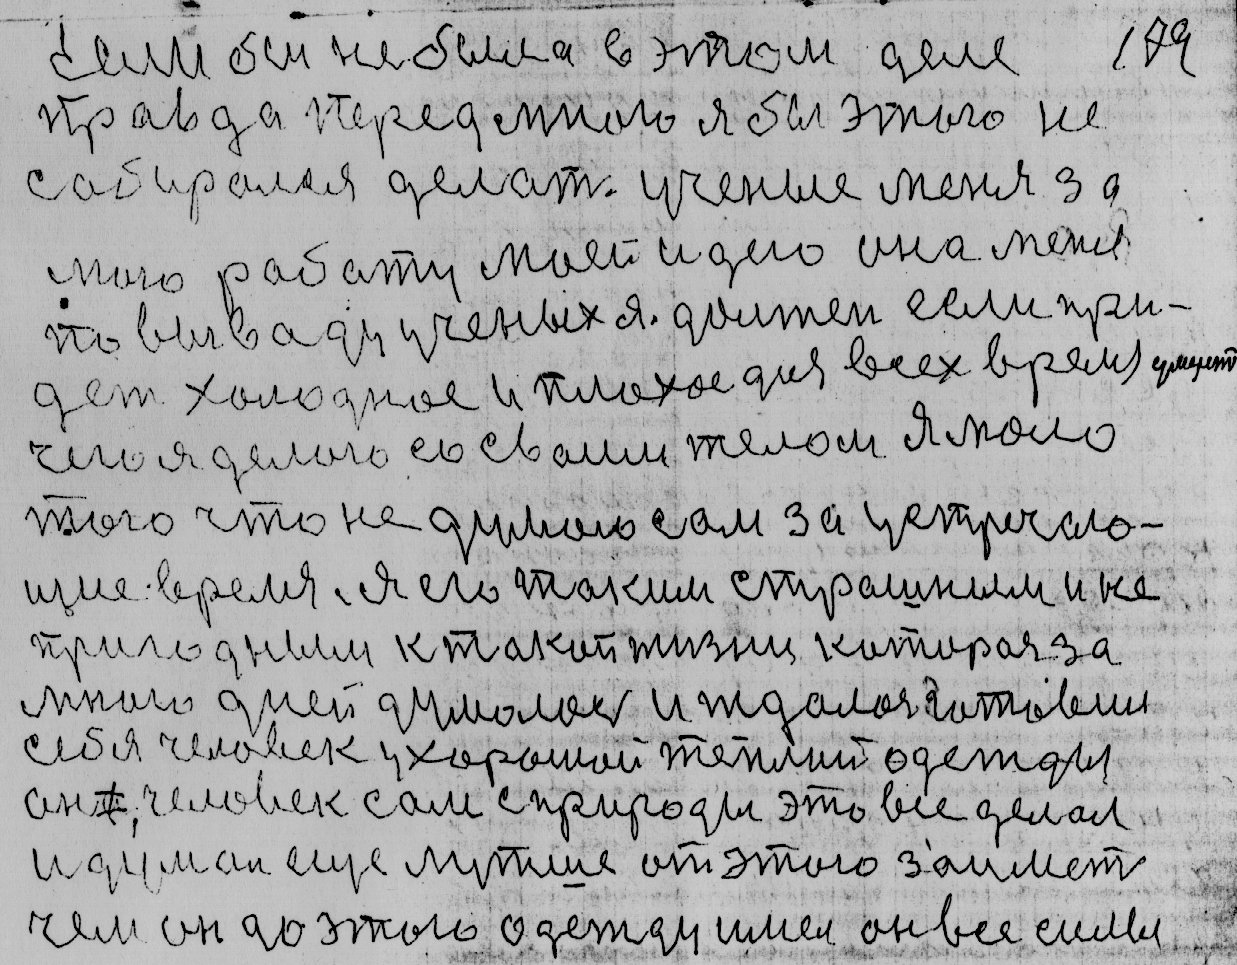 Если бы не была в этом деле 179
правда передмною я бы этого не
собирался делат. ученые меня за
мою работу моей идею она меня
по вываду ученых я. должен если при-
дет холодное и плохое для всех время умирет
чего я делаю со своим телом я мою
того что не думаю сам за устречаю-
щие время. я его таким страшным и не
пригодным к такой жизни которая за
много дней думалось и ждалося готовил
себя человек у хорошой теплий одежды
он, человек сам с природы это все делал
и думал еще лутше от этого заимет
чем он до этого одежду имел он все силы